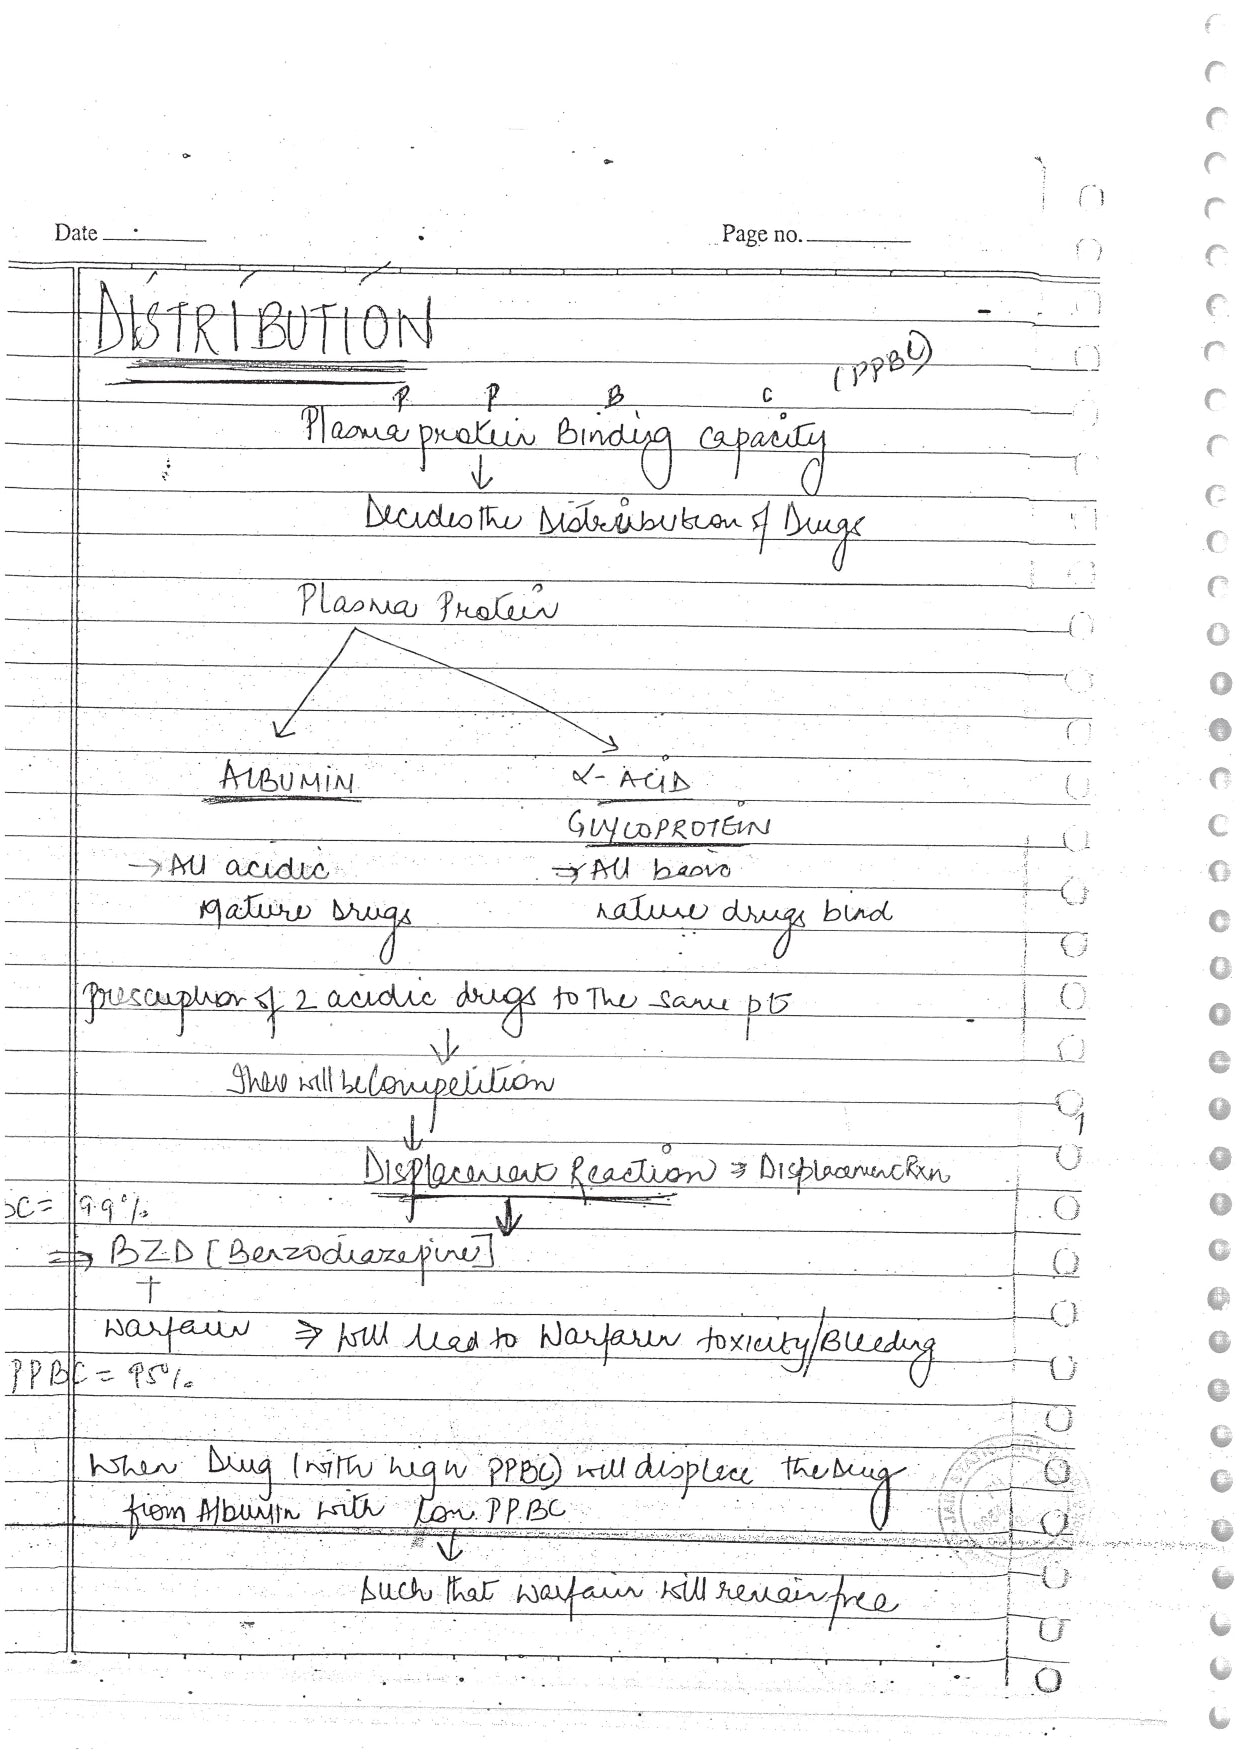 Date
Page no.
DISTRIBUTION
(PPBC)
P P B C
Plasma protein Binding capacity
↓
Decides the Distribution of Drugs
Plasma Protein
ALBUMIN α- ACID
GLYCOPROTEIN
→ All acidic ⇒ All basic
nature drugs nature drugs bind
prescription of 2 acidic drugs to the same pt
↓
There will be Competition
↓
Displacement Reaction ⇒ Displacement Rxn
↓
BC = 99%
⇒ BZD [Benzodiazepine]
+
Warfarin ⇒ will lead to Warfarin toxicity/Bleeding
PPBC = 95%
When Drug (with high PPBC) will displace the drug
from Albumin with low PPBC
↓
Such that warfarin will remain free